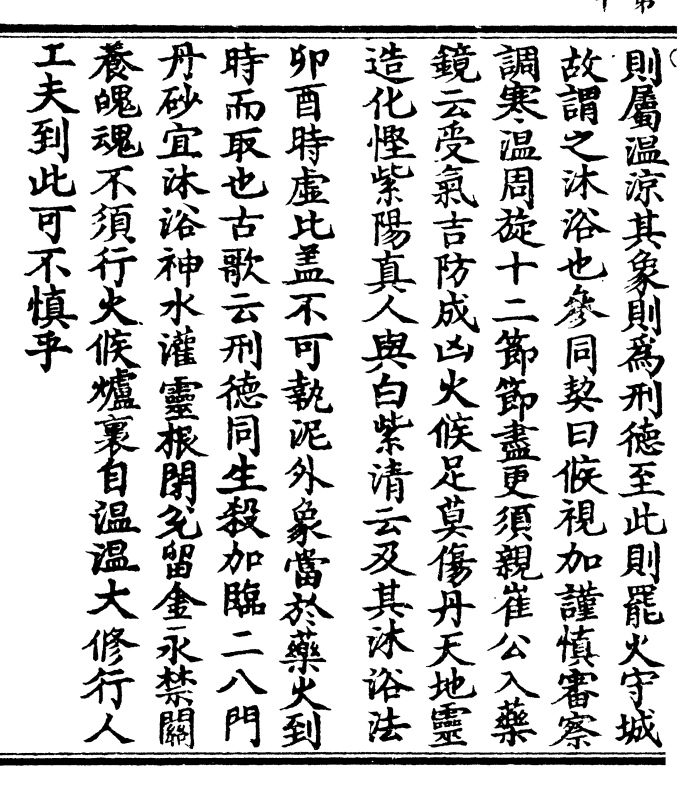 則屬温涼其象則為刑德至此則罷火守城
故謂之沐浴也參同契曰候視加謹慎審察
調寒温周旋十二節節盡更須親崔公入藥
鏡云受氣吉防成凶火候足莫傷丹天地靈
造化慳紫陽真人與白紫清云及其沐浴法
卯酉時虛比盖不可執泥外象當於藥火到
時而取也古歌云刑德同生殺加臨二八門
丹砂宜沐浴神水灌靈根閉兊留金永禁關
養魄魂不須行火候爐裏自温温大修行人
工夫到此可不慎乎